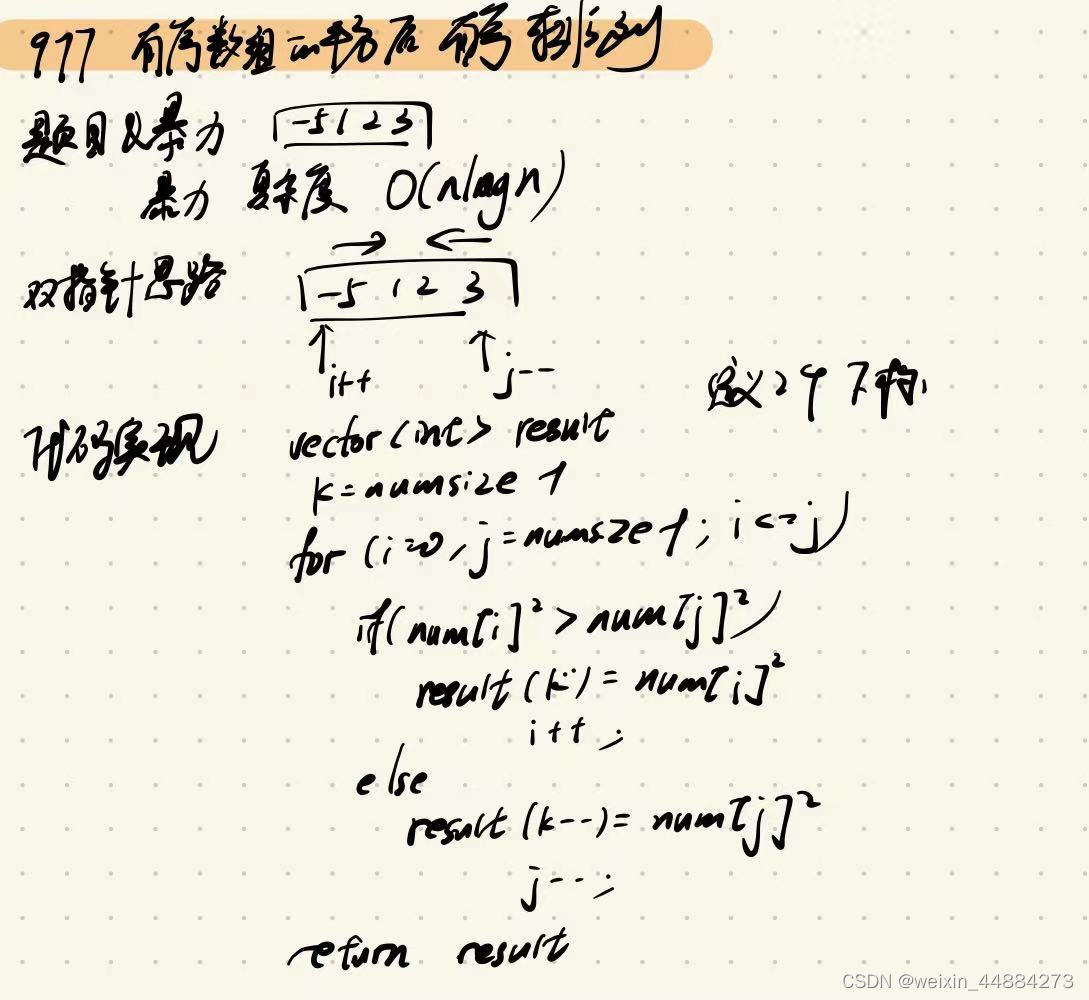 977 有序数组的平方后 有序排列
题目及暴力 -5 1 2 3
暴力 复杂度 O(nlogn)
双指针思路 -5 1 2 3
i++ j--
定义2个下标
代码实现 vector<int> result
k=numsize-1
for (i=0, j=numsze-1; i<=j)
if(num[i]²>num[j]²)
result(k--)= num[i]²
i++;
else
result(k--)= num[j]²
j--;
return result
CSDN @weixin_44884273